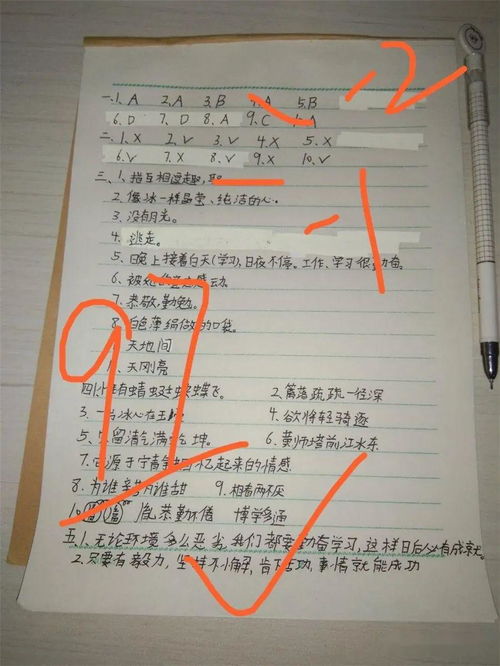 一.1.A 2.A 3.B 4.A 5.B -2
6.D 7.D 8.A 9.C A
二.1.X 2.V 3.V 4.X 5.X
6.V 7.X 8.V 9.X 10.V
三.1.指互相
2.像冰一样晶莹、纯洁的心。
3.没有月光。
4.逃走。 -1
5.晚上接着白天(学习),日夜不停。工作、学习很勤奋。
6.被 感动
7.恭敬,勤勉。
8.白色薄绢做的口袋。
天地间
天刚亮
97
四.1.惟有蜻蜓蛱蝶飞。 2.篱落疏疏一径深
3.一 冰心在玉 4.欲将轻骑逐
5.只留清气满 坤。 6.黄师塔前江水东
7. 源于 起来的情感
8.为谁辛苦为谁甜 9.相看两不厌
10. 胤恭勤不倦 博学多通
五.1.无论环境多么恶劣,我们都要勤奋学习,这样日后必有成就。
2.只要有毅力,坚持不懈,肯下苦功,事情就能成功